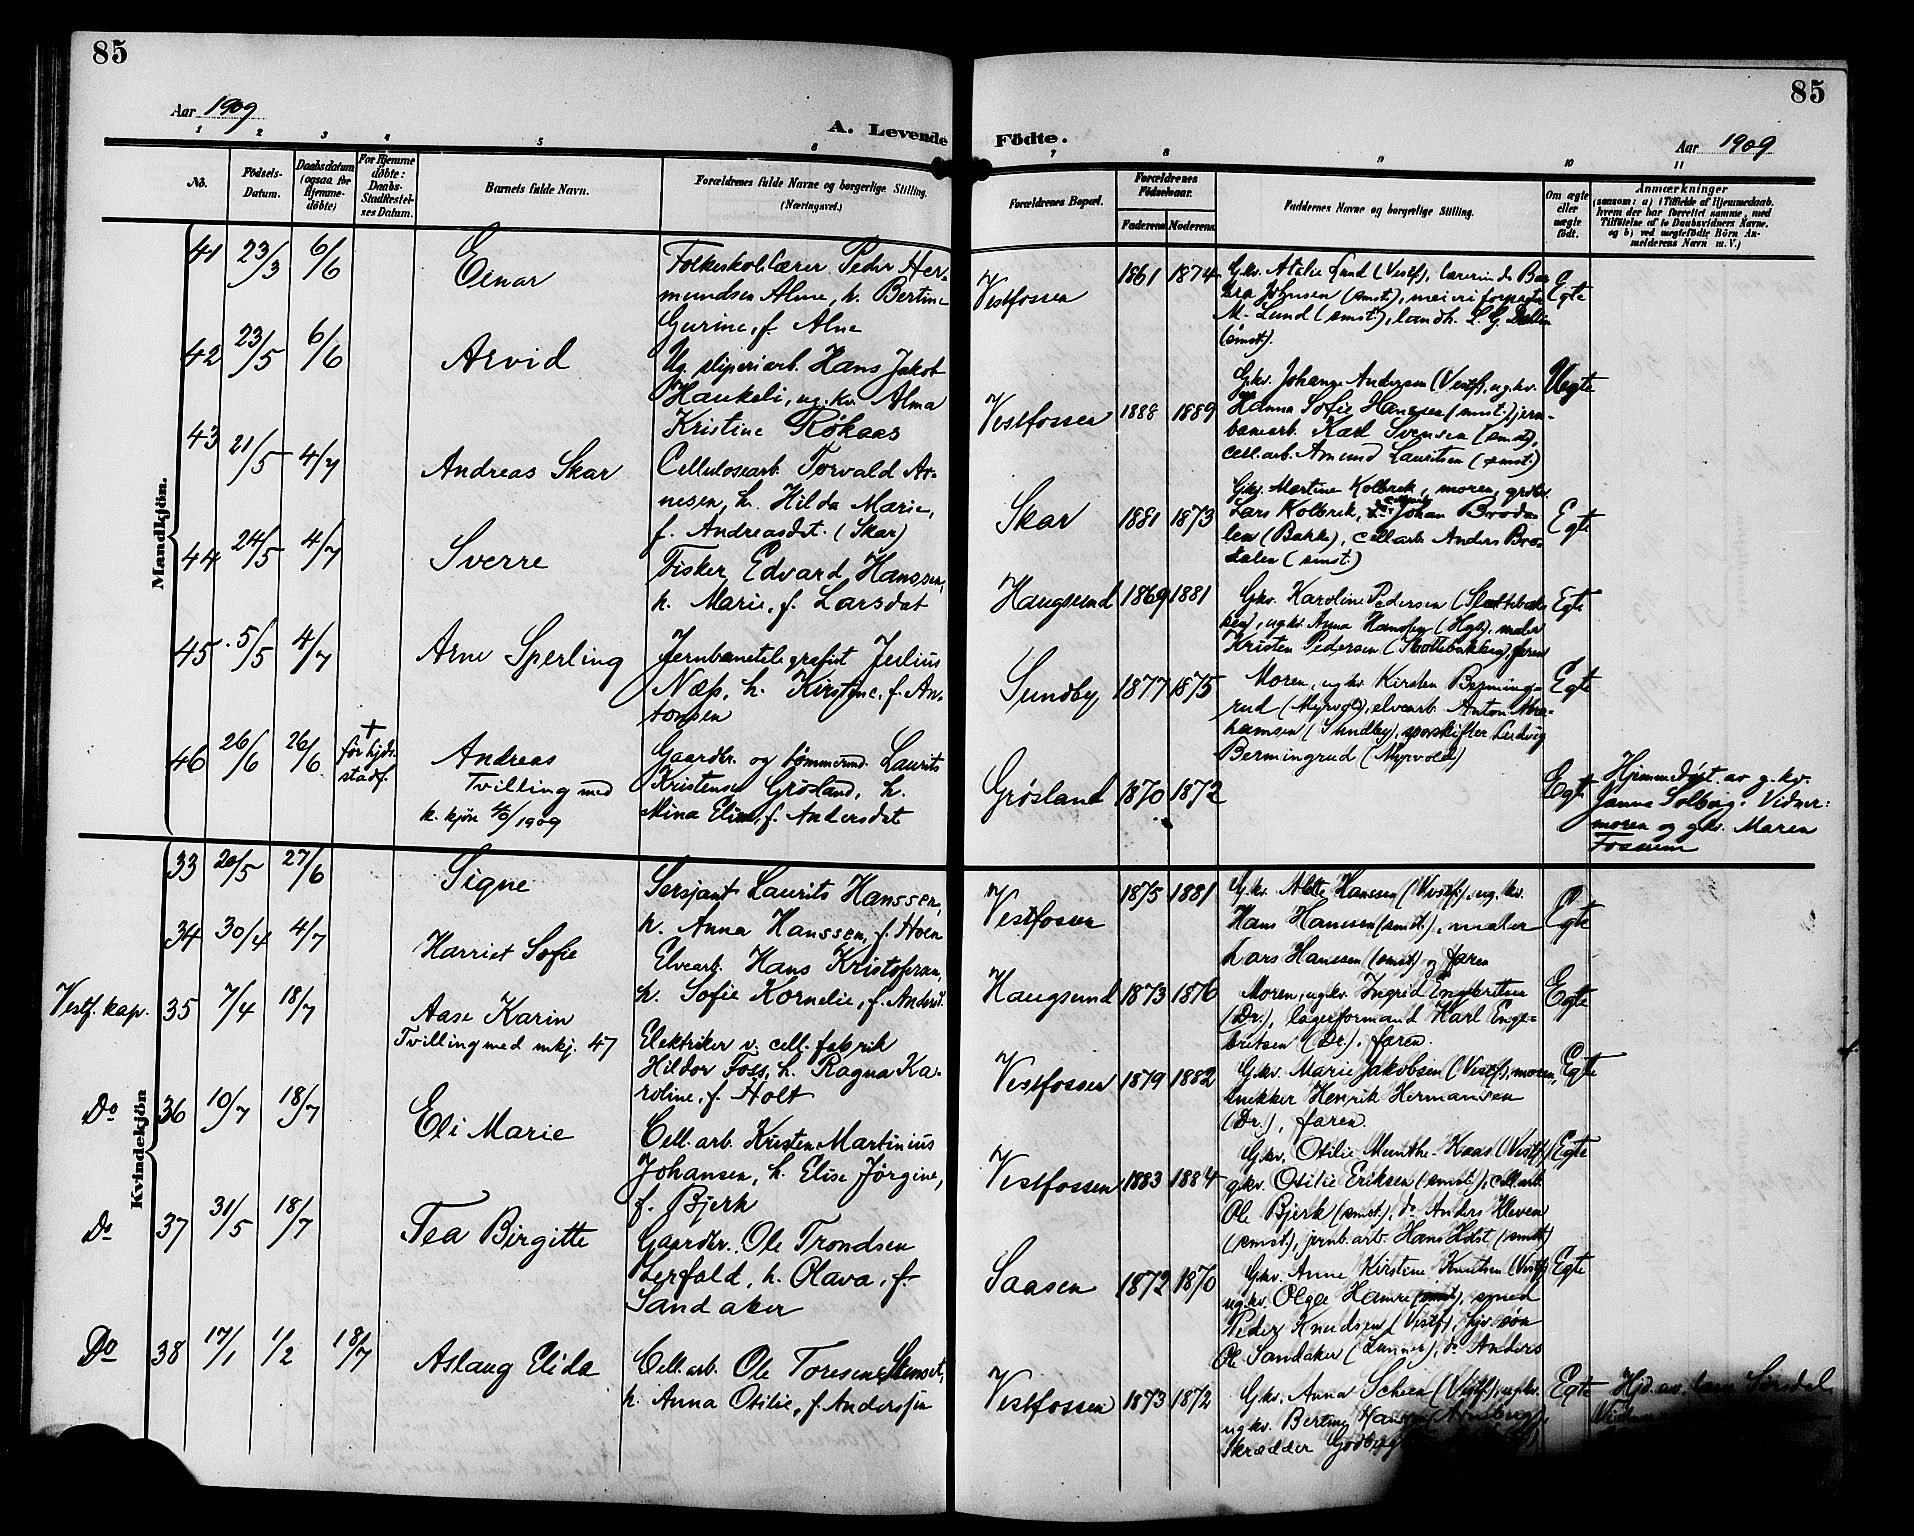 85
85
Aar 1909
A. Levende Födte.
Aar 1909
1 2 3 4 5 6 7 8 9 10 11
No.
Födsels-Datum.
Daabsdatum (ogsaa for Hjemme-döbte)
For Hjemme döbte: Daabs-Stadfæstel-ses Datum.
Barnets fulde Navn.
Forældrenes fulde Navne og borgerlige Stilling. (Næringsvei.)
Forældrenes Bopæl.
Forældrenes Födselsaar.
Faderens Moderens
Faddernes Navne og borgerlige Stilling.
Om ægte eller uægte födt.
Anmærkninger
(saasom: a) i Tilfælde af Hjemmedaab, hvem der har forrettet samme, med Tilföielse af to Daabsvidners Navne, og b) ved uægtefödte Börn An-melderens Navn m. V.)
Mandkjön.
41 23/3 6/6 Einar
Folkeskolelærer Peder Her-
mundsen Alme, h. Bertine
Gurine, f. Alme
Vestfossen 1861 1874
Gkv. Atalie Lund (Vestf), lærerinde Bar-
bra Johnsen (smst), meieriforpagter
M. Lund (smst), landh. L. G. Dablin
(smst).
Egte
42 23/5 6/6 Arvid
Ug. sliperiarb. Hans Jakob
Haukeli, ug. kv. Alma
Kristine Røkaas
Vestfossen 1888 1889
Gkv. Johanne Andersen (Vestf), ug. kv.
Hanna Sofie Hansen (smst) jern-
banearb. Karl Svensen (smst),
cell. arb. Amund Lauritsen (smst)
Uegte
43 21/5 4/7 Andreas Skar
Cellulosearb. Torvald Ar-
nesen, h. Hilda Marie,
f. Andreasdt. (Skar)
Skar 1881 1873
Gkv. Martine Kolbrek, moren, grdbr.
Lars Kolbrek, Johan Broda-
len (Bakke), cellarb. Anders Bro-
dalen (smst)
Egte
44 24/5 4/7 Sverre
Fisker Edvard Hanssen,
h. Marie, f. Larsdat
Haugsund 1869 1881
Gkv. Karoline Pedersen (Slottebak-
ken), ugkv. Anna Hansen (Hgs), maler
Kristen Pedersen (Slottebakken), faren
Egte
45 5/5 4/7 Arne Sperling
Jernbanetelegrafist Julius
Næss, h. Kirstine, f. An-
tonsen
Sundby 1877 1875
Moren, ugkv Kirsten Berming-
rud (Myrvold), elvearb. Anton Abra-
hamsen (Sundby), sporskifter Ludvig
Bermingrud (Myrvold)
Egte
46 26/6 26/6 + før hjds. stadf.
Andreas
Tvilling med
k. kjøn 46/1909
Gaardbr. og tømmerm. Laurits
Kristensen Grøsland, h.
Mina Eline, f. Andersdat
Grøsland 1870 1872
Egte
Hjemmedøpt. av g. kv.
Janna Solberg. Vidner:
moren og gkv. Maren
Fossum
Kvindekjön
33 20/5 27/6 Signe
Sersjant Laurits Hanssen,
h. Anna Hanssen, f. Hoen
Vestfossen 1875 1881
Gkv. Alette Hansen (Vestf.), ug. kv.
Hans Hansen (smst), maler
Lars Hansen (smst) og faren
Egte
34 30/4 4/7 Harriet Sofie
Elvearb. Hans Kristofersen,
h. Sofie Kornelie, f. Andersd.
Haugsund 1873 1876
Moren, ugkv. Ingrid Engebritsen
(Dr.), lagerformand Karl Enge-
britsen (Dr.), faren.
Egte
Vestf. kap. 35 7/4 18/7 Aase Karin
Tvilling med mkj. 47
Elektriker v. cell. fabrik
Hildor Foss, h. Ragna Ka-
roline, f. Holt
Vestfossen 1879 1882
Gkv. Marie Jakobsen (Vestf), moren,
snekker Henrik Hermansen
(Dr.), faren.
Egte
Do 36 10/7 18/7 Eli Marie
Cell. arb. Kristen Martinius
Johansen, h. Elise Jørgine,
f. Bjerk
Vestfossen 1883 1884
Gkv. Otilie Munthe-Kaas (Vestf),
gkv. Otilie Eriksen (smst), cell arb
Ole Bjerk (smst), do Anders Kleven
(smst), jernb. arb. Hans Holst (smst)
Egte
Do 37 31/5 18/7 Tea Birgitte
Gaardbr. Ole Trondsen
Lerfald, h. Olava, f.
Sandaker
Saasen 1872 1870
Gkv. Anne Kirstine Knutsen (Vestf)
ug. kv. Olga Hamre (smst), smed
Peder Knudsen (Vestf), hjv. søn
Ole Sandaker (Lunner), do Anders
Egte
Do 38 17/1 1/2 18/7 Aslaug Elida
Cell. arb. Ole Toresen Stenset,
h. Anna Otilie, f. Anderssen
Vestfossen 1873 1872
Gkv. Anna Scheen (Vestf), ugkv.
ugkv. Berting Hansen (Arneberg),
Skrædder Godberg
Egte
Hjd. av. Sørsdal.
Vidne